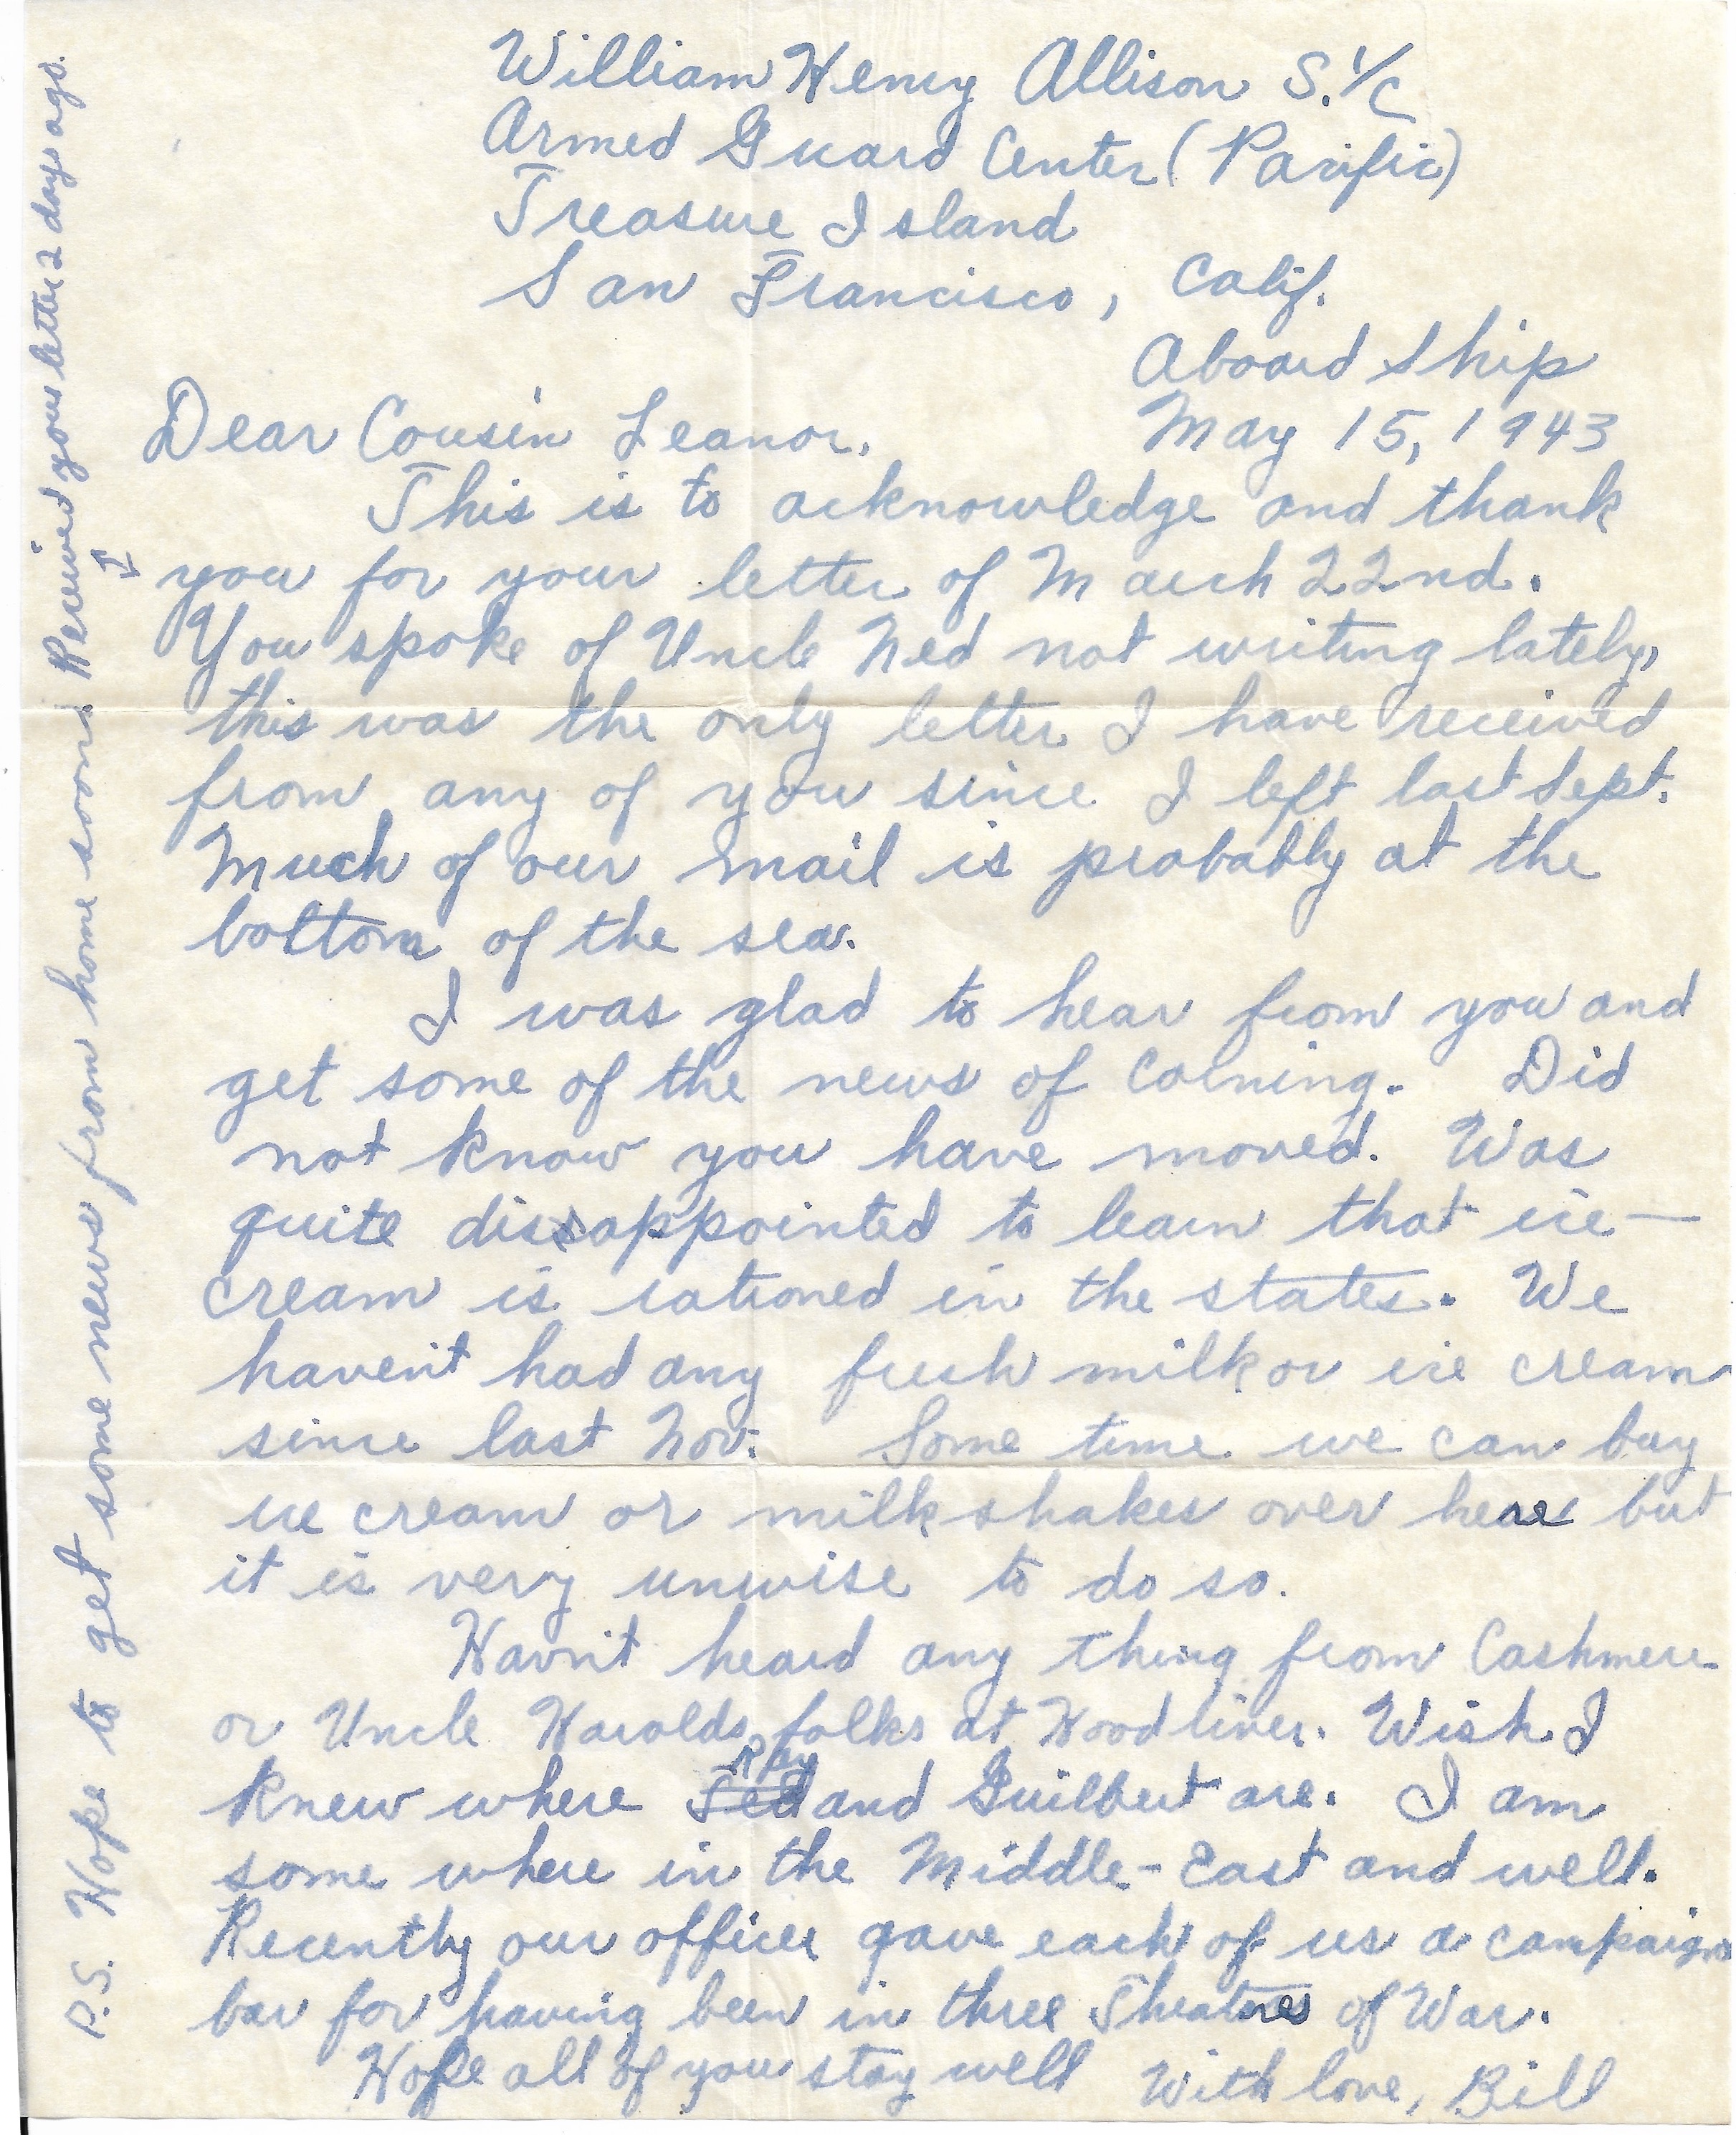 William Henry Allison S. 1/C
Armed Guard Center (Pacific)
Treasure Island
San Francisco, Calif.
Aboard Ship
May 15, 1943
Dear Cousin Leanor,
This is to acknowledge and thank
you for your letter of March 22nd.
You spoke of Uncle Ned not writing lately,
this was the only letter I have received
from any of you since I left last Sept.
Much of our mail is probably at the
bottom of the sea.
I was glad to hear from you and
get some of the news of Corning. Did
not know you have moved. Was
quite dissappointed to learn that ice-
cream is rationed in the states. We
haven't had any fresh milk or ice cream
since last Nov. Some time we can buy
ice cream or milk shakes over here but
it is very unwise to do so.
Havn't heard any thing from Cashmere
or Uncle Harolds folks at Hoodriver. Wish I
Ray
knew where Ted and Guilbert are. I am
some where in the Middle-East and well.
Recently our officer gave each of us a campaign
bar for having been in three Theatres of War.
Hope all of you stay well With love, Bill
P.S. Hope to get some news from home soon. Received your letter 2 days ago.